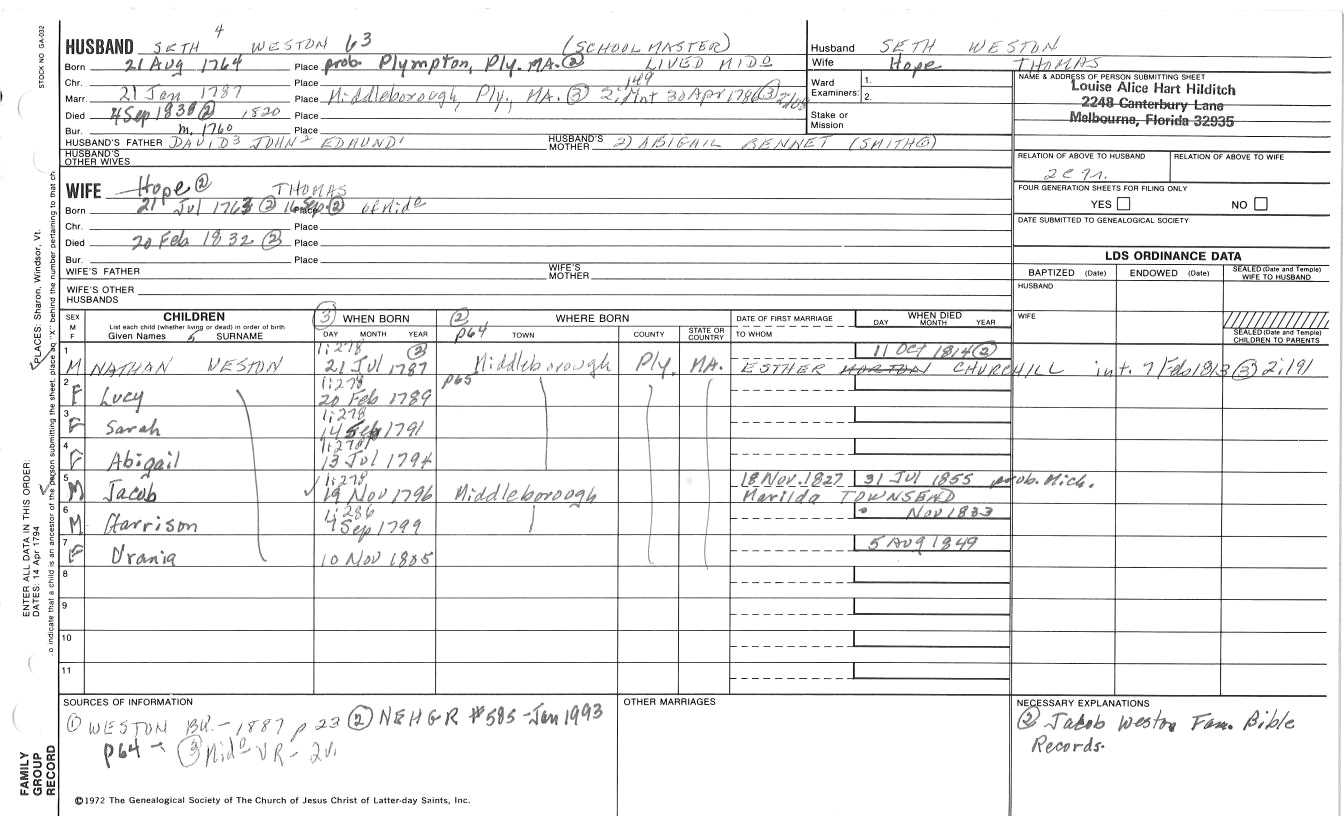 STOCK NO GA-032
HUSBAND SETH 4 WESTON 63 (SCHOOL MASTER)
Born 21 AUG 1764 Place prob. Plympton, Ply. MA. ② LIVED MIDO
Chr. Place 149
Marr. 21 Jan 1787 Place Middleborough, Ply., MA. ③ 2; Mnt 30 Apr 1786 ③
Died 4 Sep 1830 ② 1820 Place
Bur. m. 1760 Place
HUSBAND'S FATHER DAVID³ JOHN² EDMUND¹ HUSBAND'S MOTHER 2) ABIGAIL BENNET (SMITH
HUSBAND'S OTHER WIVES
WIFE Hope ② THOMAS
Born 21 Jul 1763 ② 16 Sep ② Place of Mido
Chr. Place
Died 20 Feb 1832 ② Place
Bur. Place
WIFE'S FATHER WIFE'S MOTHER
WIFE'S OTHER HUSBANDS
Husband SETH WESTON
Wife Hope THOMAS
Ward Examiners: 1. 2.
Stake or Mission
NAME & ADDRESS OF PERSON SUBMITTING SHEET
Louise Alice Hart Hilditch
2248 Canterbury Lane
Melbourne, Florida 32935
RELATION OF ABOVE TO HUSBAND RELATION OF ABOVE TO WIFE
FOUR GENERATION SHEETS FOR FILING ONLY
YES NO
DATE SUBMITTED TO GENEALOGICAL SOCIETY
LDS ORDINANCE DATA
BAPTIZED (Date) ENDOWED (Date) SEALED (Date and Temple) WIFE TO HUSBAND
HUSBAND
WIFE
SEALED (Date and Temple) CHILDREN TO PARENTS
SEX M F CHILDREN ③ WHEN BORN ② WHERE BORN DATE OF FIRST MARRIAGE WHEN DIED
List each child (whether living or dead) in order of birth
Given Names SURNAME DAY MONTH YEAR p64 TOWN COUNTY STATE OR COUNTRY TO WHOM DAY MONTH YEAR
1 1;278 ② 11 OCT 1814 ②
M NATHAN WESTON 21 Jul 1787 Middleborough Ply. MA. ESTHER HORTON CHURCHILL int. 7 Feb 1813 ③ 2;191
2 1;278 p65
F Lucy 20 Feb 1789
3 1;278
F Sarah 14 Sep 1791
4 1;278
F Abigail 13 Jul 1794
5 1;278 18 Nov. 1827 31 Jul 1855 prob. Mich.
M Jacob ✓ 19 Nov 1796 Middleborough Marilda TOWNSEND
6 1;286 Nov 1833
M Harrison 4 Sep 1799
7 5 Aug 1849
F Urania 10 Nov 1805
8
9
10
11
SOURCES OF INFORMATION
① WESTON BK. - 1887 p 23 ② NEHGR #585 - Jan 1993
p64 - ③ Mido VR - 2v.
OTHER MARRIAGES
NECESSARY EXPLANATIONS
② Jacob Weston Fam. Bible
Records.
©1972 The Genealogical Society of The Church of Jesus Christ of Latter-day Saints, Inc.
FAMILY GROUP RECORD
ENTER ALL DATA IN THIS ORDER:
DATES: 14 Apr 1794
PLACES: Sharon, Windsor, Vt.
o indicate that a child is an ancestor of the person submitting the sheet, place an "X" behind the number pertaining to that ch